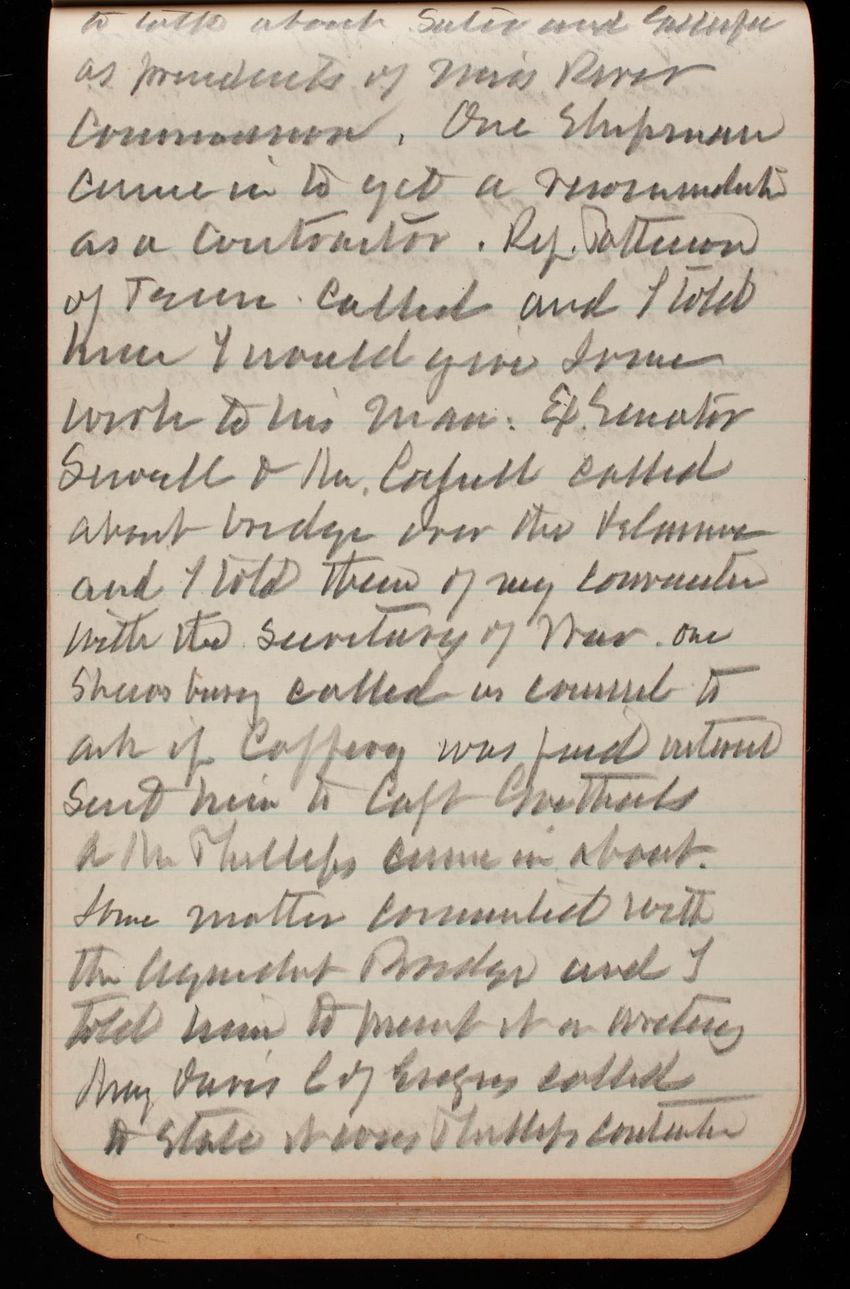 to talk about Suter and Gillespie
as presidents of Miss River
Commission. One Shipman
came in to get a recommendation
as a contractor. Rep. Patterson
of Tenn. called and I told
him I would give some
work to his man. Ex Senator
Sewell & Mr. called
about bridge over the Delaware
and I told them of my
with the Secretary of War. one
Shrewsbury called as counsel to
ask if Caffery was paid
Send him to Capt Goethals
A Mr Phillips came in about.
Some matter connected with
the Aqueduct Bridge and I
told him to present it in writing
Maj Davis C of Engrs called
to state it was Phillips